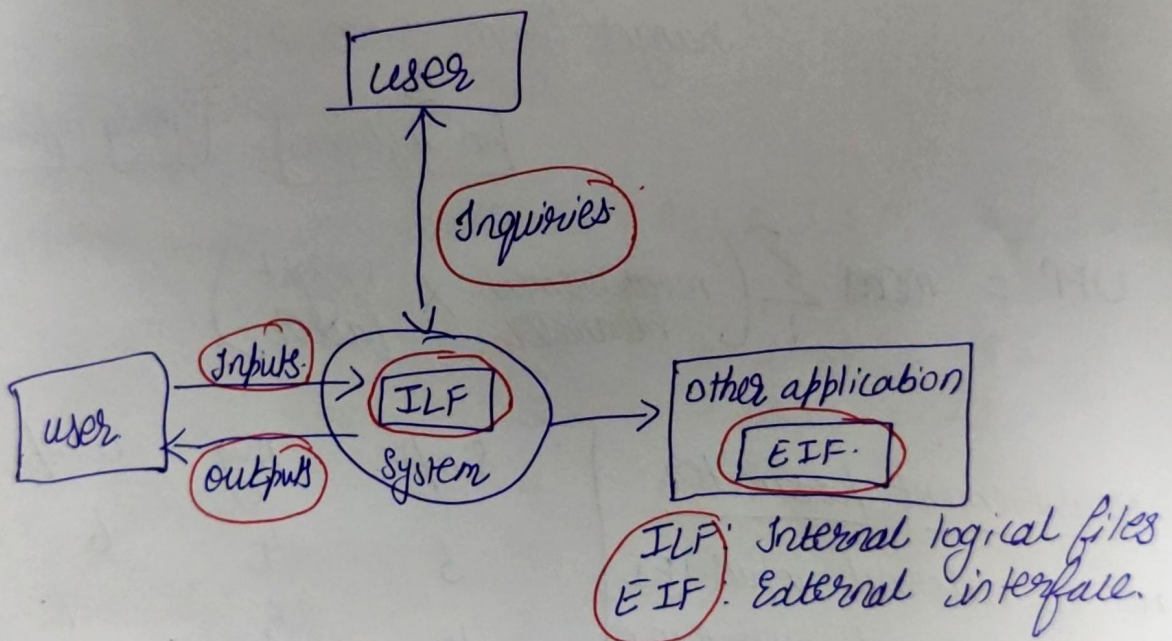 user
Inquiries
Inputs
user
outputs
ILF
System
other application
EIF
ILF: Internal logical files
EIF: External interface.